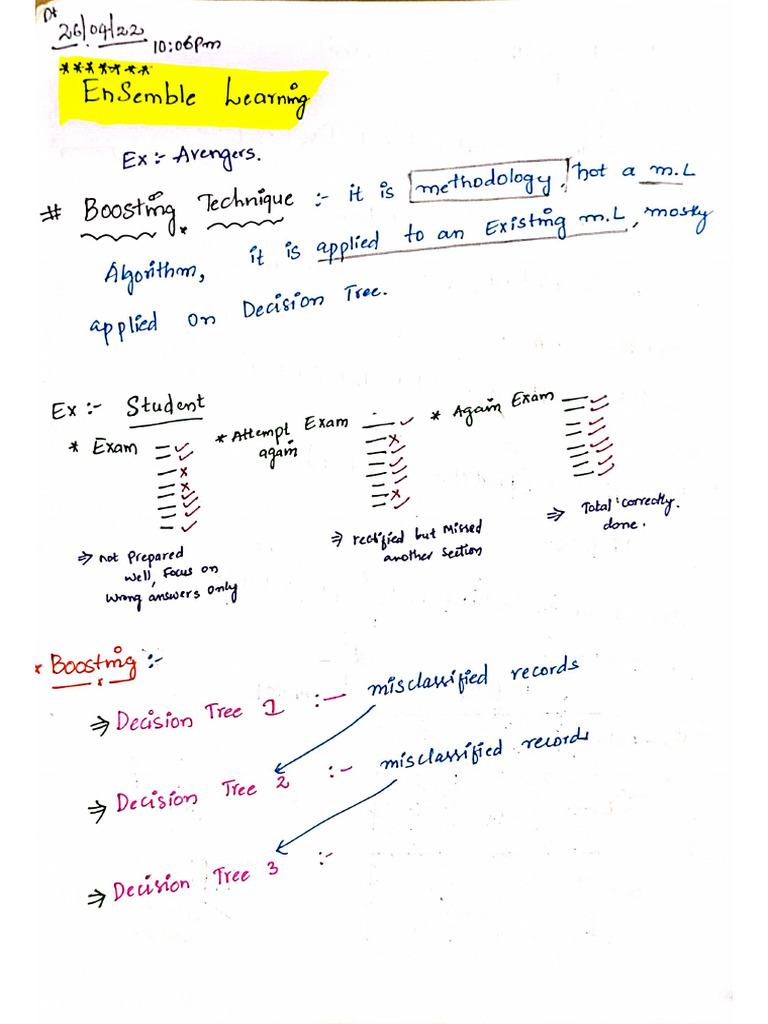 Dt
26/04/22
10:06pm
*******
EnSemble Learning
Ex :- Avengers.
# Boosting Technique :- it is methodology, not a m.L
Algorithm, it is applied to an Existing m.L, mostly
applied on Decision Tree.
Ex :- Student
* Exam
* Attempt Exam
again
* Again Exam
⇒ not Prepared
well, Focus on
wrong answers only
⇒ rectified but Missed
another Section
⇒ Total correctly.
done.
* Boosting :-
⇒ Decision Tree 1 :- misclassified records
⇒ Decision Tree 2 :- misclassified records
⇒ Decision Tree 3 :-